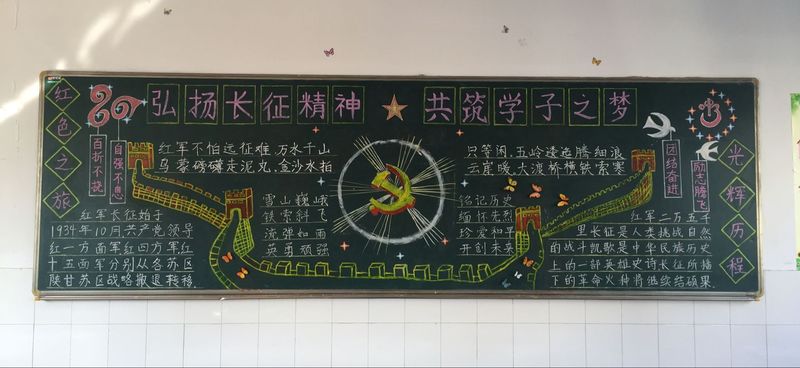 弘扬长征精神 ★ 共筑学子之梦
红色之旅
百折不挠
自强不息
红军不怕远征难,万水千山
乌蒙磅礴走泥丸,金沙水拍
只等闲,五岭逶迤腾细浪
云崖暖,大渡桥横铁索寒
团结奋进
励志腾飞
光辉历程
红军长征始于
1934年10月共产党领导
红一方面军红四方军红
十五面军分别从各苏区
陕甘苏区战略撤退转移
雪山巍峨
铁索斜飞
流弹如雨
英勇顽强
铭记历史
缅怀先烈
珍爱和平
开创未来
红军二万五千
里长征是人类挑战自然
的战斗凯歌是中华民族历史
上的一部英雄史诗长征所播
下的革命火种将继续结硕果